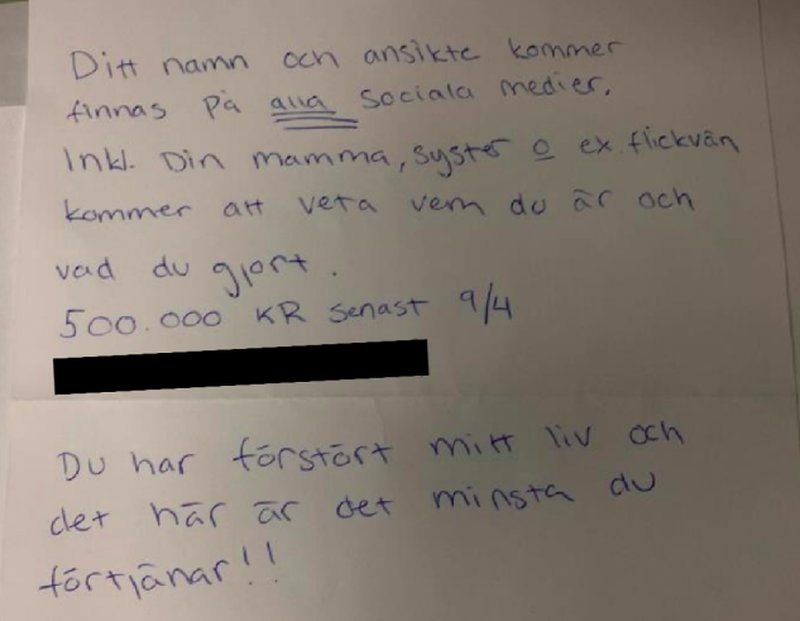 Ditt namn och ansikte kommer
finnas på alla sociala medier.
Inkl. Din mamma, syster o ex.flickvän
kommer att veta vem du är och
vad du gjort.
500.000 KR senast 9/4
Du har förstört mitt liv och
det här är det minsta du
förtjänar!!